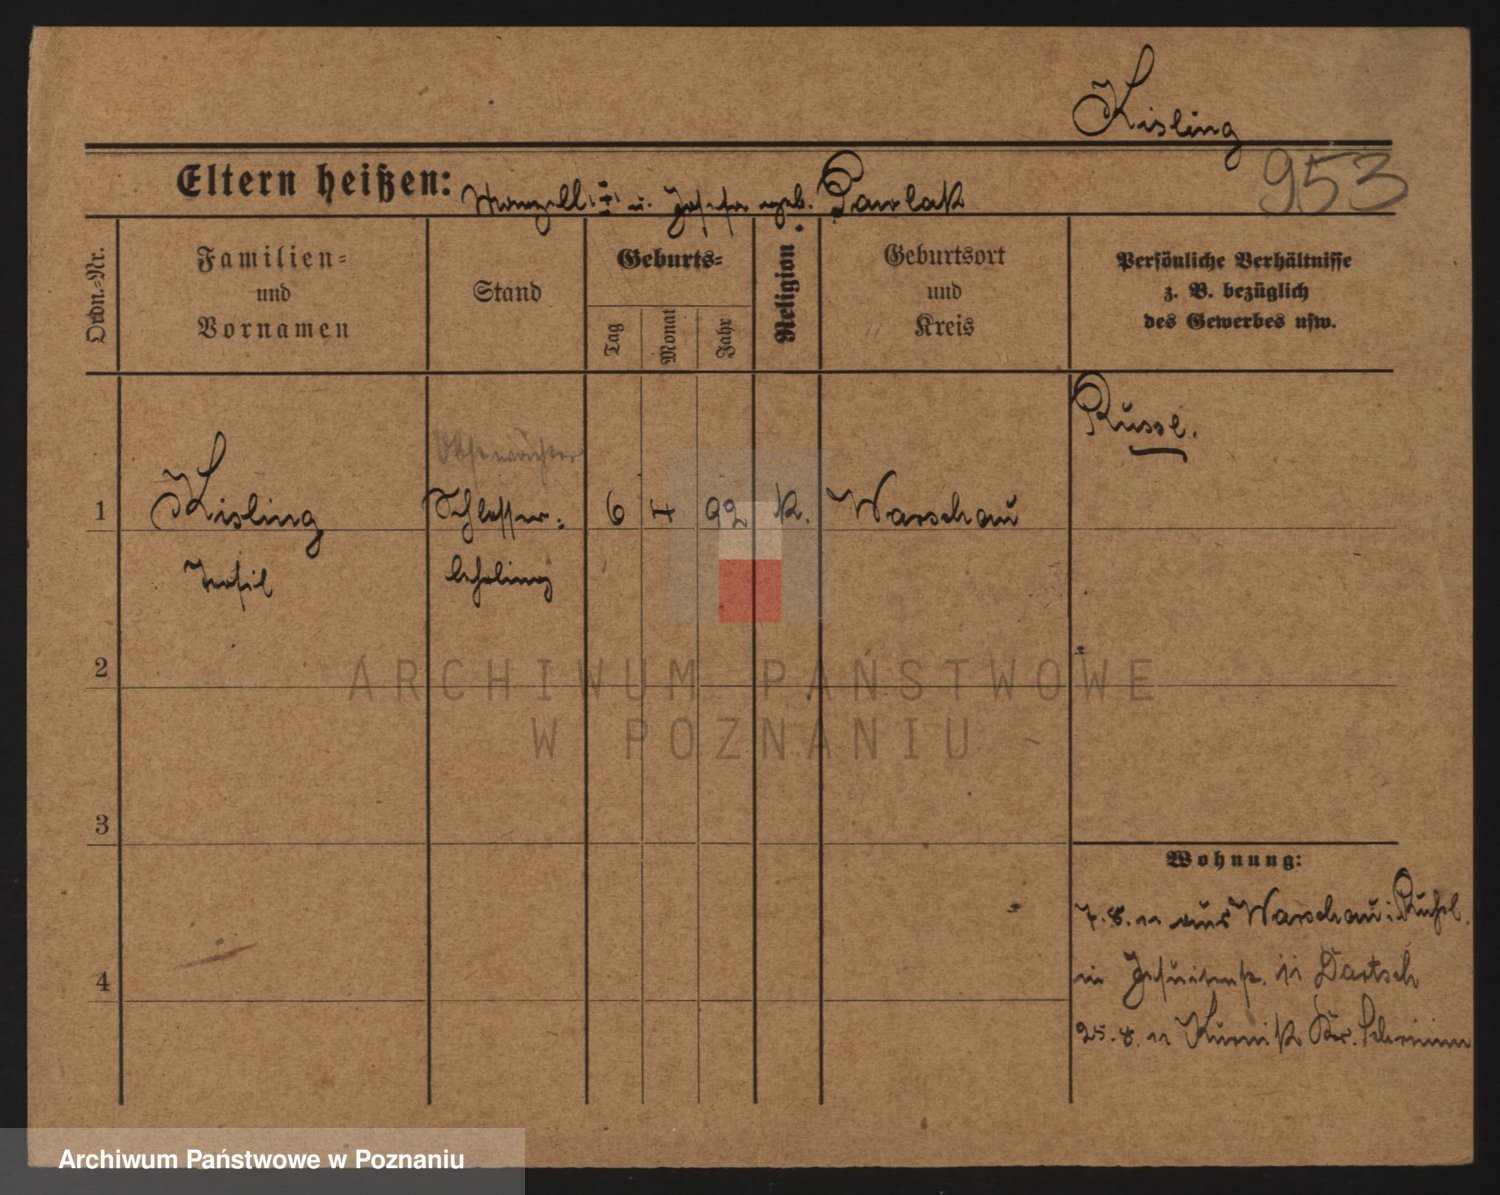 Kisling
953
Eltern heißen: u. Josefa geb. Pawlak
Ordn.-Nr.
Familien-
und
Vornamen
Stand
Geburts-
Tag
Monat
Jahr
Religion
Geburtsort
und
Kreis
Persönliche Verhältnisse
z. B. bezüglich
des Gewerbes usw.
Russl.
1 Kisling Schlosser- 6 4 92 K. Warschau
lehrling
2
ARCHIWUM PAŃSTWOWE
W POZNANIU
3
Wohnung:
7.8.11 aus Warschau i Rußl.
in Jesuitenstr. 11 Bartsch
4
25.8.11 Kurnik Kr. Schrimm
Archiwum Państwowe w Poznaniu